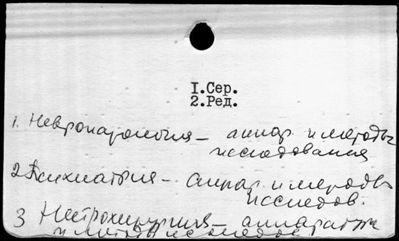 1.Сер.
2.Ред.
1. Невропатология – аппар. и методы
исследования
2. Психиатрия – аппар. и методы
исследов.
3 Нейрохирургия – аппараты
и методы исследов